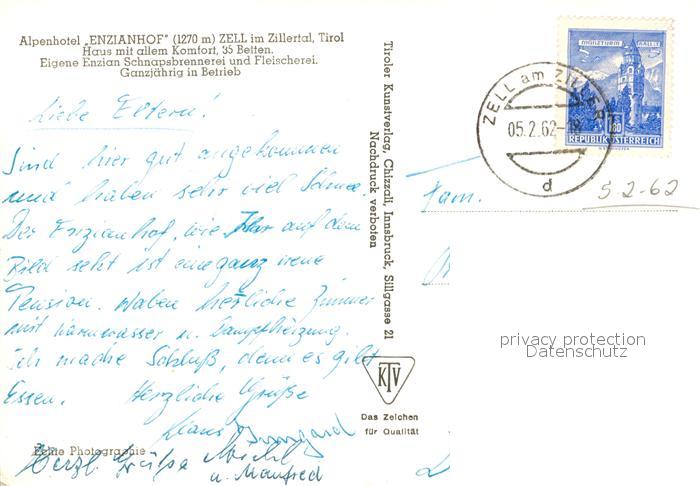 Alpenhotel „ENZIANHOF" (1270 m) ZELL im Zillertal, Tirol
Haus mit allem Komfort, 35 Betten.
Eigene Enzian Schnapsbrennerei und Fleischerei.
Ganzjährig in Betrieb
Liebe Eltern!
Sind hier gut angekommen
und haben sehr viel Schnee.
Der Enzianhof, wie Ihr auf dem
Bild seht ist eine ganz neue
Pension. Haben herrliche Zimmer
mit Warmwasser u. Dampfheizung.
Ich mache Schluß, denn es gibt
Essen. Herzliche Grüße
Hans Irmgard
Echte Photographie
Herzl. Grüße Michl
u. Manfred
Tiroler Kunstverlag, Chizzali, Innsbruck, Sillgasse 21
Nachdruck verboten
KTV
Das Zeichen
für Qualität
MÜNZTURM HALL i. T.
1.80
REPUBLIK ÖSTERREICH
ZELL am ZILLER
05.2.62-18
d
5-2-62
Fam.
privacy protection
Datenschutz